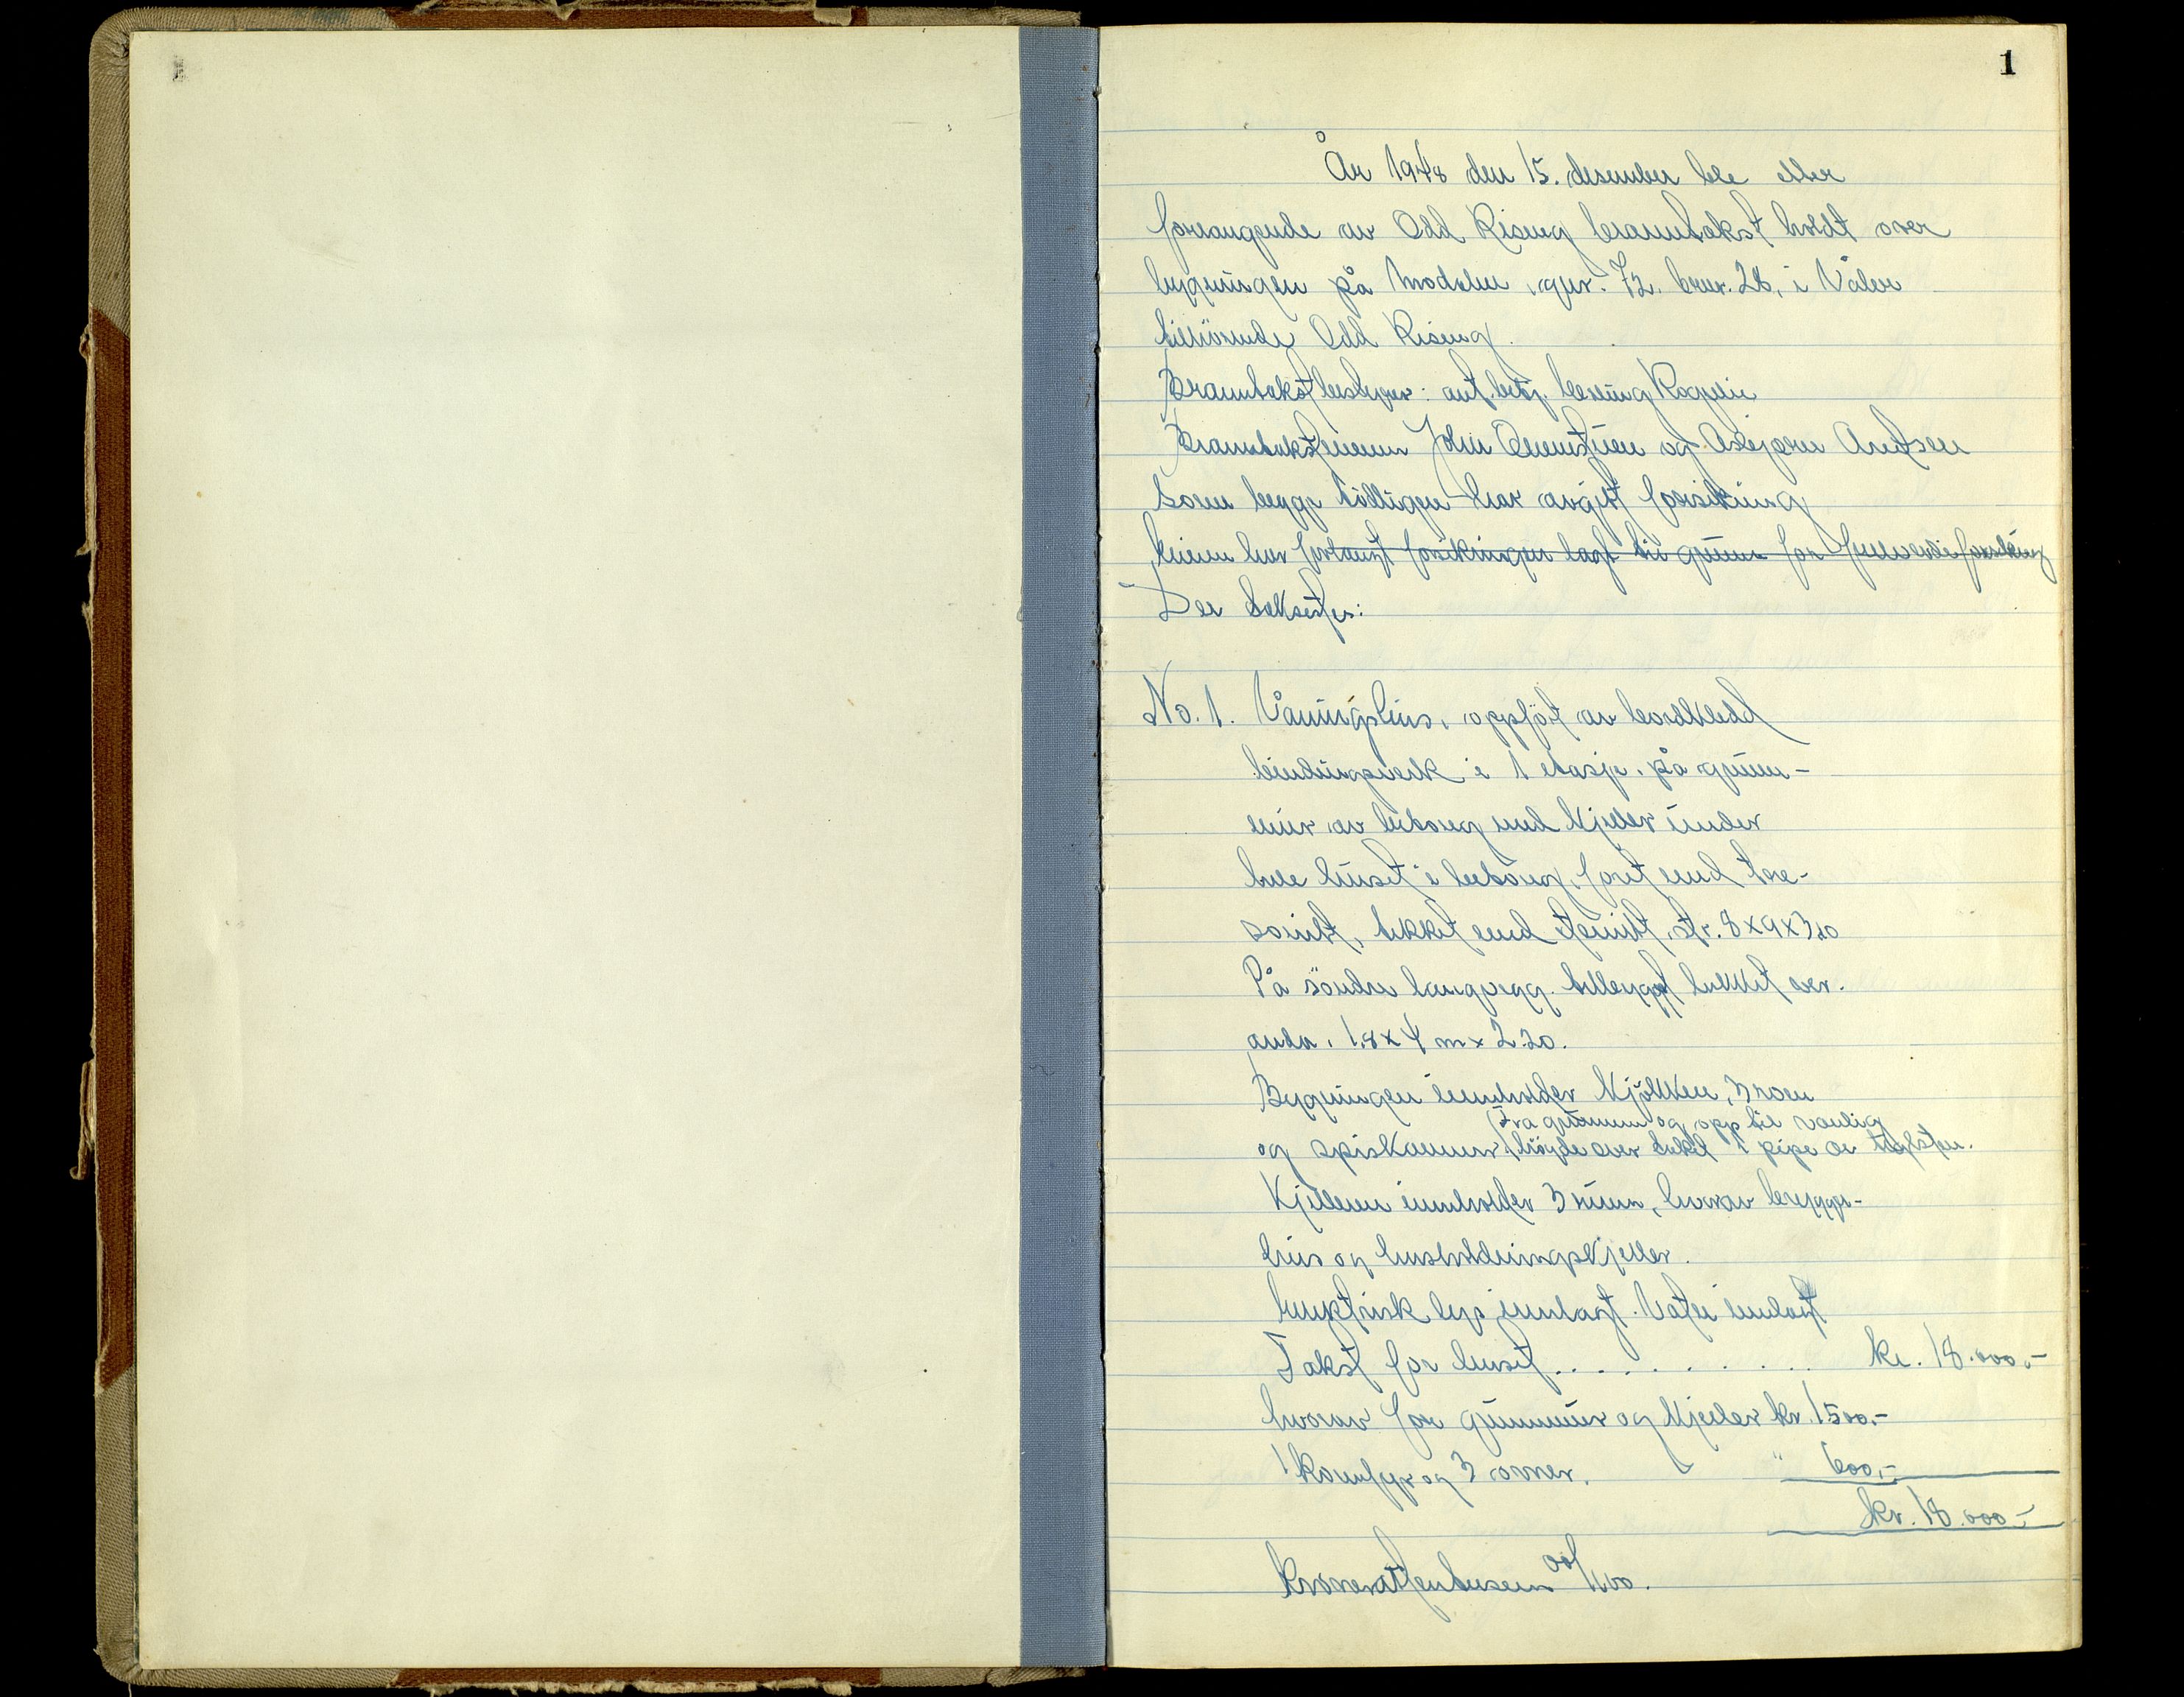 1
År 1948 den 15. desember ble etter
forlangende av Odd Rising branntakst holdt over
bygningen på Modalen, gnr. 72. brnr. 28, i Våler
tilhörende Odd Rising.
Branntakstbestyrer: Erling
Branntakstmenn John og Asbjörn Arntsen
som begge tidligere har avgitt forsikring
har forlangt forsikringen lagt til grunn for fullverdiforsikring
Der takseres:
No. 1. Våningshus, oppfört av bordkledd
bindingsverk i 1 etasje, på grunn-
mur av betong med kjeller under
hele huset i betong, foret med tre-
, tekket med , str. 8 x 9 x 3,10
På söndre langvegg tilbygget lukket ver-
anda, 1.8 x 4 m x 2.20.
Bygningen inneholder kjökken, 3 rom
(Fra grunnen og opp til vanlig
og spiskammer) höyde over taket 1 pipe av teglsten.
Kjelleren inneholder 3 rum, hvorav brygger-
hus og husholdningskjeller.
Elektrisk lys innlagt. Vann innlagt
Takst for huset . . . . . . . . . kr. 18.000.-
hvorav for grunnmur og kjeller kr. 1500.-
1 komfyr og 3 ovner. " 600.-
kr. 18.000.-
Kroner attentusen 00/100.